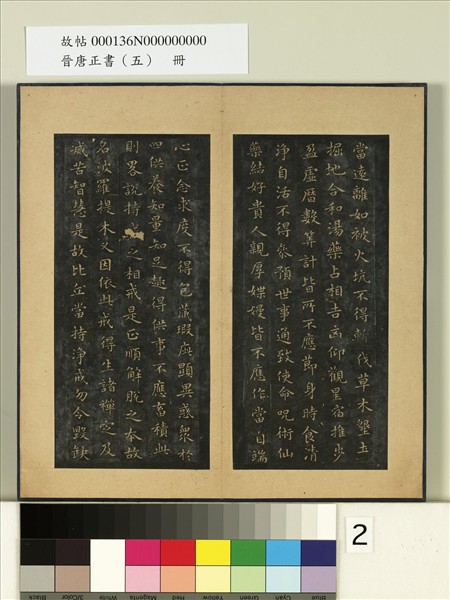 故帖 000136N000000000
晉唐正書（五） 冊
當遠離如被火坑不得斬伐草木墾土
掘地合和湯藥占相吉凶仰觀星宿推步
盈虛曆數算計皆所不應節身時食清
淨自活不得參預世事通致使命咒術仙
藥結好貴人親厚媟嫚皆不應作當自端
心正念求度不得包藏瑕疵顯異惑眾於
四供養知量知足趣得供事不應畜積此
則略說持戒之相戒是正順解脫之本故
名波羅提木叉因依此戒得生諸禪定及
滅苦智慧是故比丘當持淨戒勿令毀缺
2
Black
3/Color
White
Magenta
Red
Yellow
Green
Cyan
Blue